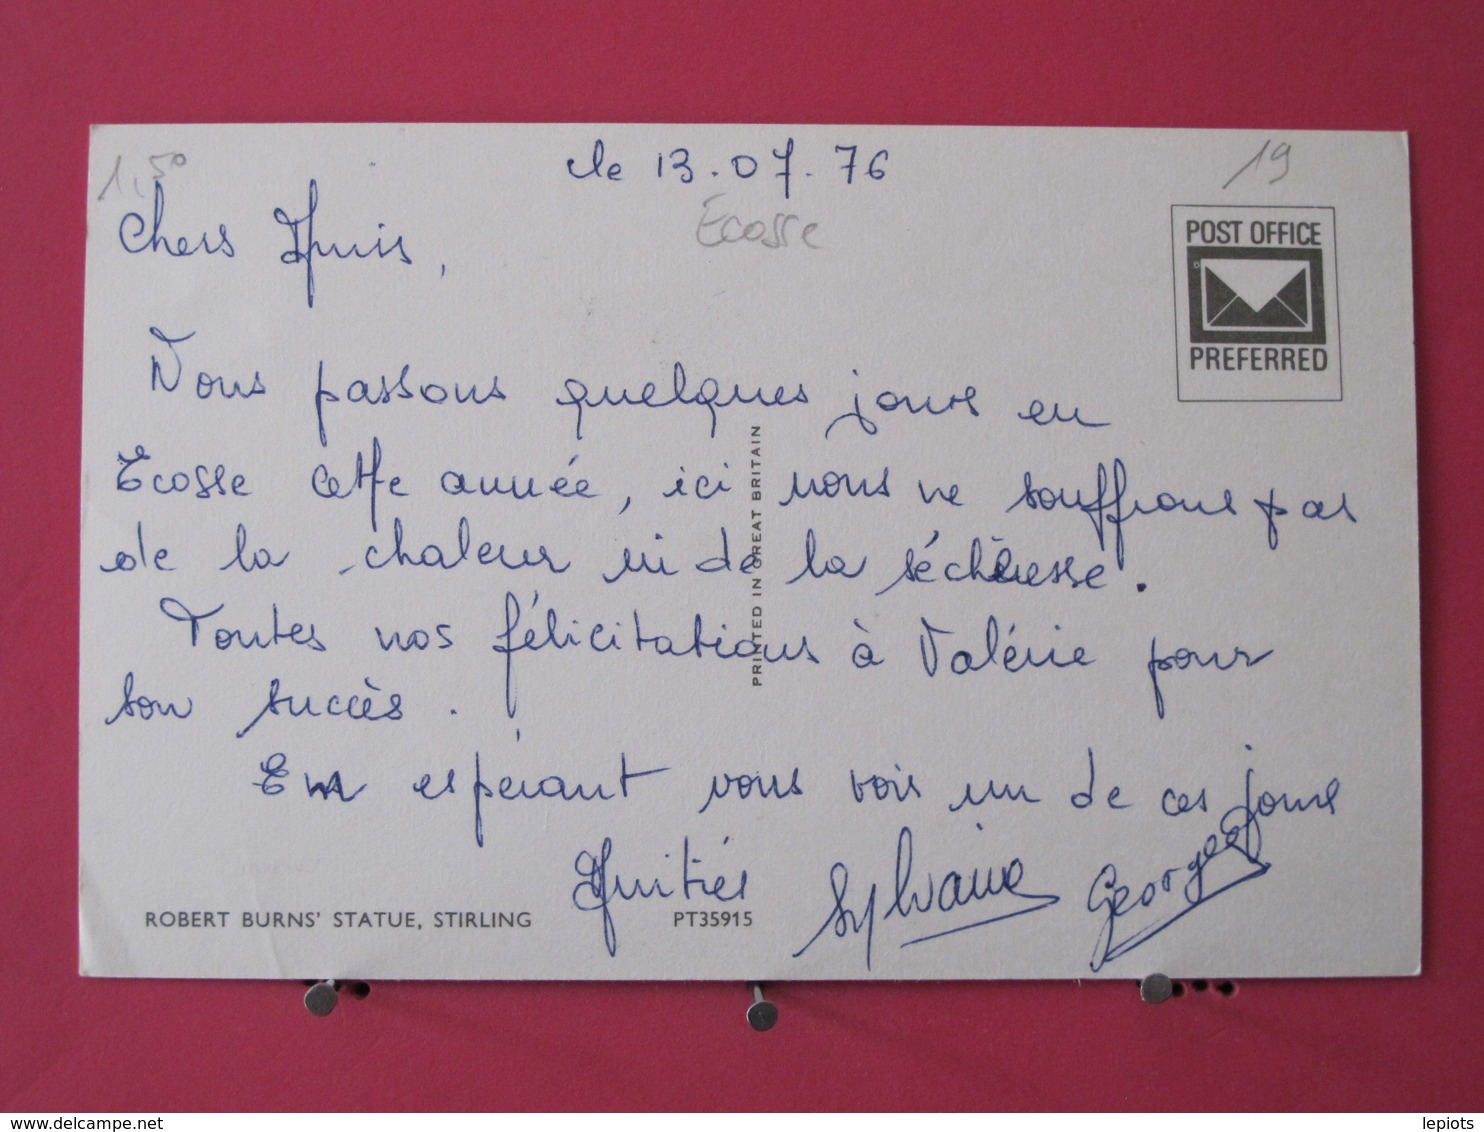 1,50
le 13.07.76
19
Ecosse
Chers Amis,
POST OFFICE
PREFERRED
Nous passons quelques jours en
Ecosse cette année, ici nous ne souffrons pas
de la chaleur ni de la sécheresse.
Toutes nos félicitations à Valérie pour
son succès.
En espérant vous voir un de ces jours
Amitiés Sylvaine Georges
PRINTED IN GREAT BRITAIN
ROBERT BURNS' STATUE, STIRLING
PT35915
delcampe.net
lepiots